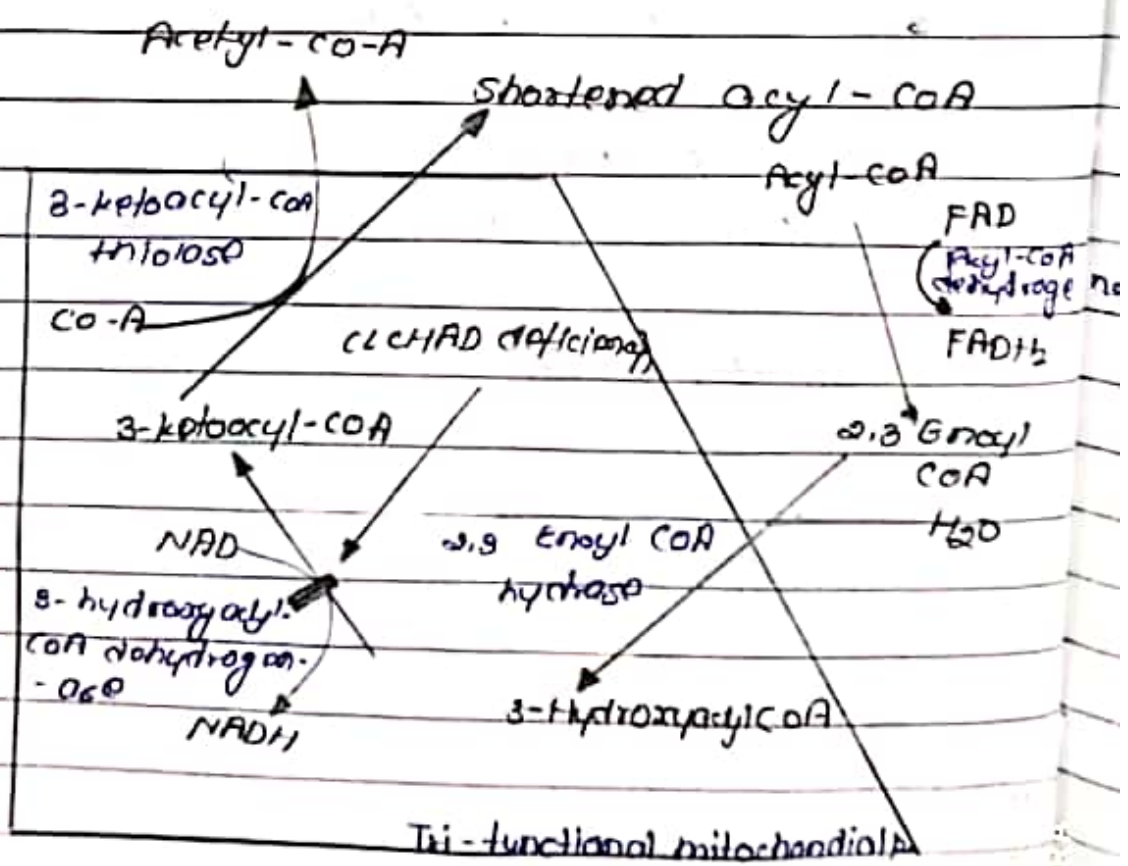 Acetyl-CO-A
Shortened acyl-CoA
Acyl-CoA
3-ketoacyl-CoA
thiolose
FAD
Acyl-CoA
FADH2
CO-A
CLCHAD deficiency
3-ketoacyl-COA
2,3 Enoyl
COA
H2O
NAD
2,3 Enoyl COA
hydrase
3-hydroxyacyl-
COA dehydrogen-
-ase
NADH
3-HydroxyacylCoA
Tri-functional mitochondial